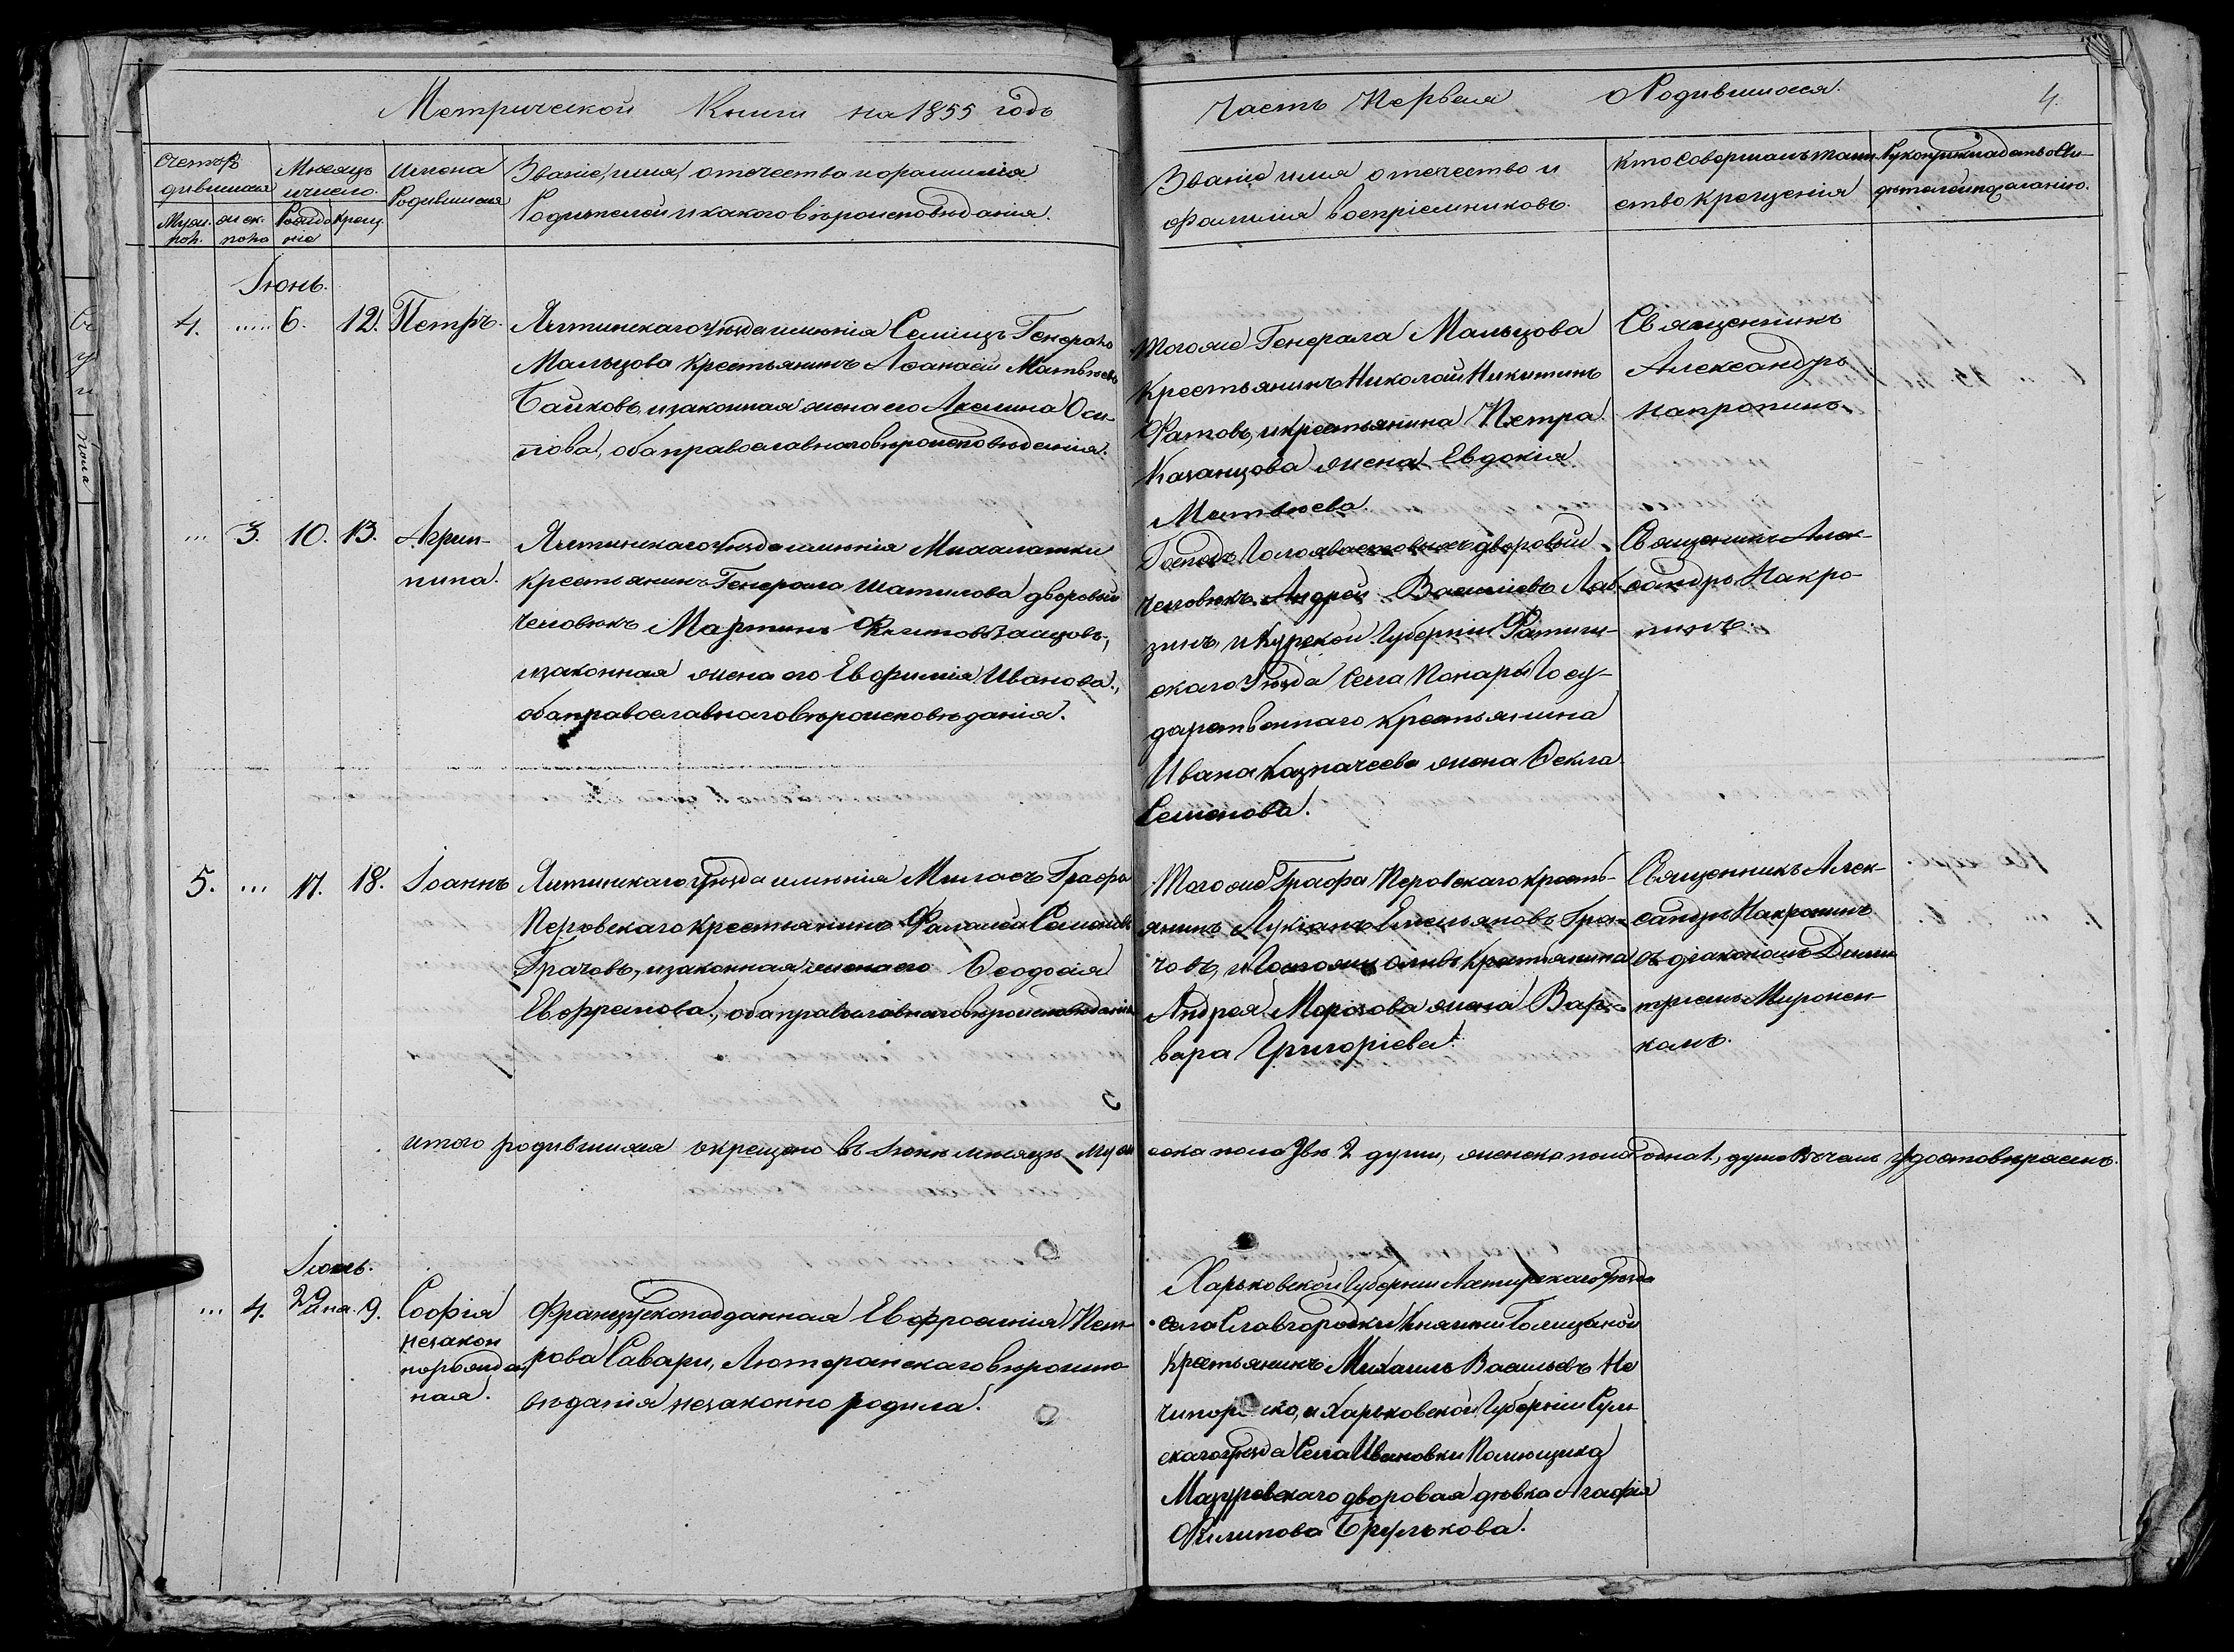 Метрической Книги на 1855 годъ
Часть Первая О Родившихся.
4.
Счетъ родившихся
Мужск. пол.
женск. пола
Мѣсяцъ и число.
Рождение
Крещ.
Имена Родившихся
Званіе, имя, отечество и фамилія
Родителей и какого вѣроисповѣданія.
Званіе имя отечество и
фамилія воспріемниковъ.
Кто совершалъ таин-
ство крещенія
Рукоприкладство сви-
дѣтелей по желанію.
Іюнь.
4. ..... 6. 12. Петръ.
Ялтинскаго уѣзда имѣнія Симеизъ Генерала
Мальцова крестьянинъ Аѳанасій Матвѣевъ
Байковъ, и законная жена его Акелина Оси-
пова, оба православнаго вѣроисповѣданія.
Того же Генерала Мальцова
Крестьянинъ Николай Никитинъ
Фатовъ, и крестьянина Петра
Казанцова жена Евдокія
Матвѣева.
Священникъ
Александръ
Напропинъ.
... 3. 10. 13. Агрип-
пина.
Ялтинскаго уѣзда имѣнія Михалатки
крестьянинъ Генерала Шатилова дворовый
человѣкъ Мартинъ
и законная жена его Евфимія Иванова.,
оба православнаго вѣроисповѣданія.
Господъ дворовый
человѣкъ Андрей Василіевъ Лаб-
зинъ, и Курской Губерніи Фатиж-
скаго Уѣзда Села Понары Госу-
дарственнаго крестьянина
Ивана Казначеева жена Ѳекла
Семенова.
Священникъ Алек-
сандръ Напро-
пинъ.
5. ... 17. 18. Іоаннъ
Ялтинскаго уѣзда имѣнія Миласъ Графа
Перовскаго крестьянинъ Фалалей Семеновъ
Грачовъ, и законная жена его Ѳеодосія
Евфремова., оба православнаго вѣроисповѣданія
Того же Графа Перовскаго кресть-
янинъ Лукіанъ Емельяновъ Гра-
човъ, и крестьянина
Андрея Морозова жена Вар-
вара Григоріева.
Священникъ Алек-
сандръ Напропинъ
съ діакономъ Дими-
тріемъ Миронен-
комъ.
итого родившихся окрещено въ Іюнѣ мѣсяцѣ муж
еска пола двѣ 2 души, женска пола одна 1, душа Въ чемъ удостовѣряемъ.
Іюль.
... 4. 29 9. Софія
незакон
норожден
ная.
Французскоподданная Евфросинія Пет-
рова Савари, Лютеранскаго вѣроиспо-
вѣданія незаконно родила.
Харьковской Губерніи Ахтырскаго уѣзда
села Славгородки Княгини Голицыной
крестьянинъ Михаилъ Васильевъ Не
и Харьковской Губерніи Сум
скаго уѣзда Села Ивановки Помѣщика
Мазуровскаго дворовая дѣвка Агафія
Филипова Брулькова.